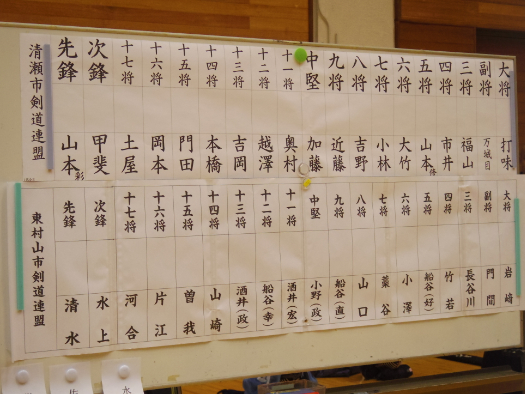 清瀬市剣道連盟
先鋒 山本彩
次鋒 甲斐
十七将 土屋
十六将 岡本
十五将 門田
十四将 本橋
十三将 吉岡
十二将 越澤
十一将 奥村
中堅 加藤
九将 近藤
八将 吉野
七将 小林
六将 大竹
五将 山本
四将 市井
三将 福山
副将 万城目
大将 打味
東村山市剣道連盟
先鋒 清水
次鋒 水上
十七将 河合
十六将 片江
十五将 曽我
十四将 山崎
十三将 酒井(政)
十二将 船谷(幸)
十一将 酒井(宏)
中堅 小野(政)
九将 船谷(直)
八将 山口
七将 葉谷
六将 小澤
五将 船谷(好)
四将 竹若
三将 長谷川
副将 門間
大将 岩崎